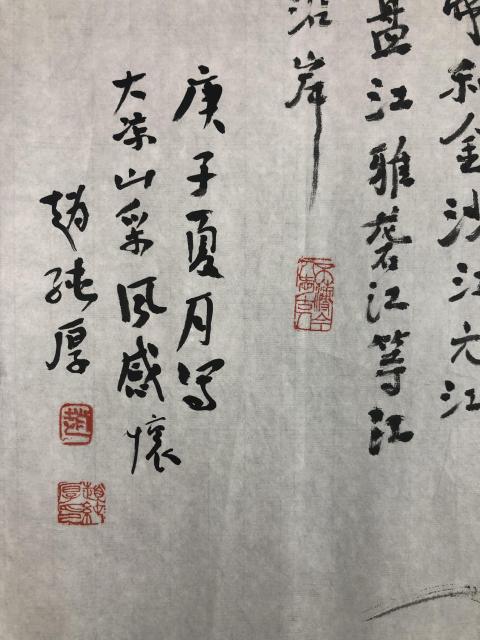 和金沙江元江
盘江雅砻江等江
沿岸
庚子夏月写
大凉山采风感怀
赵纯厚